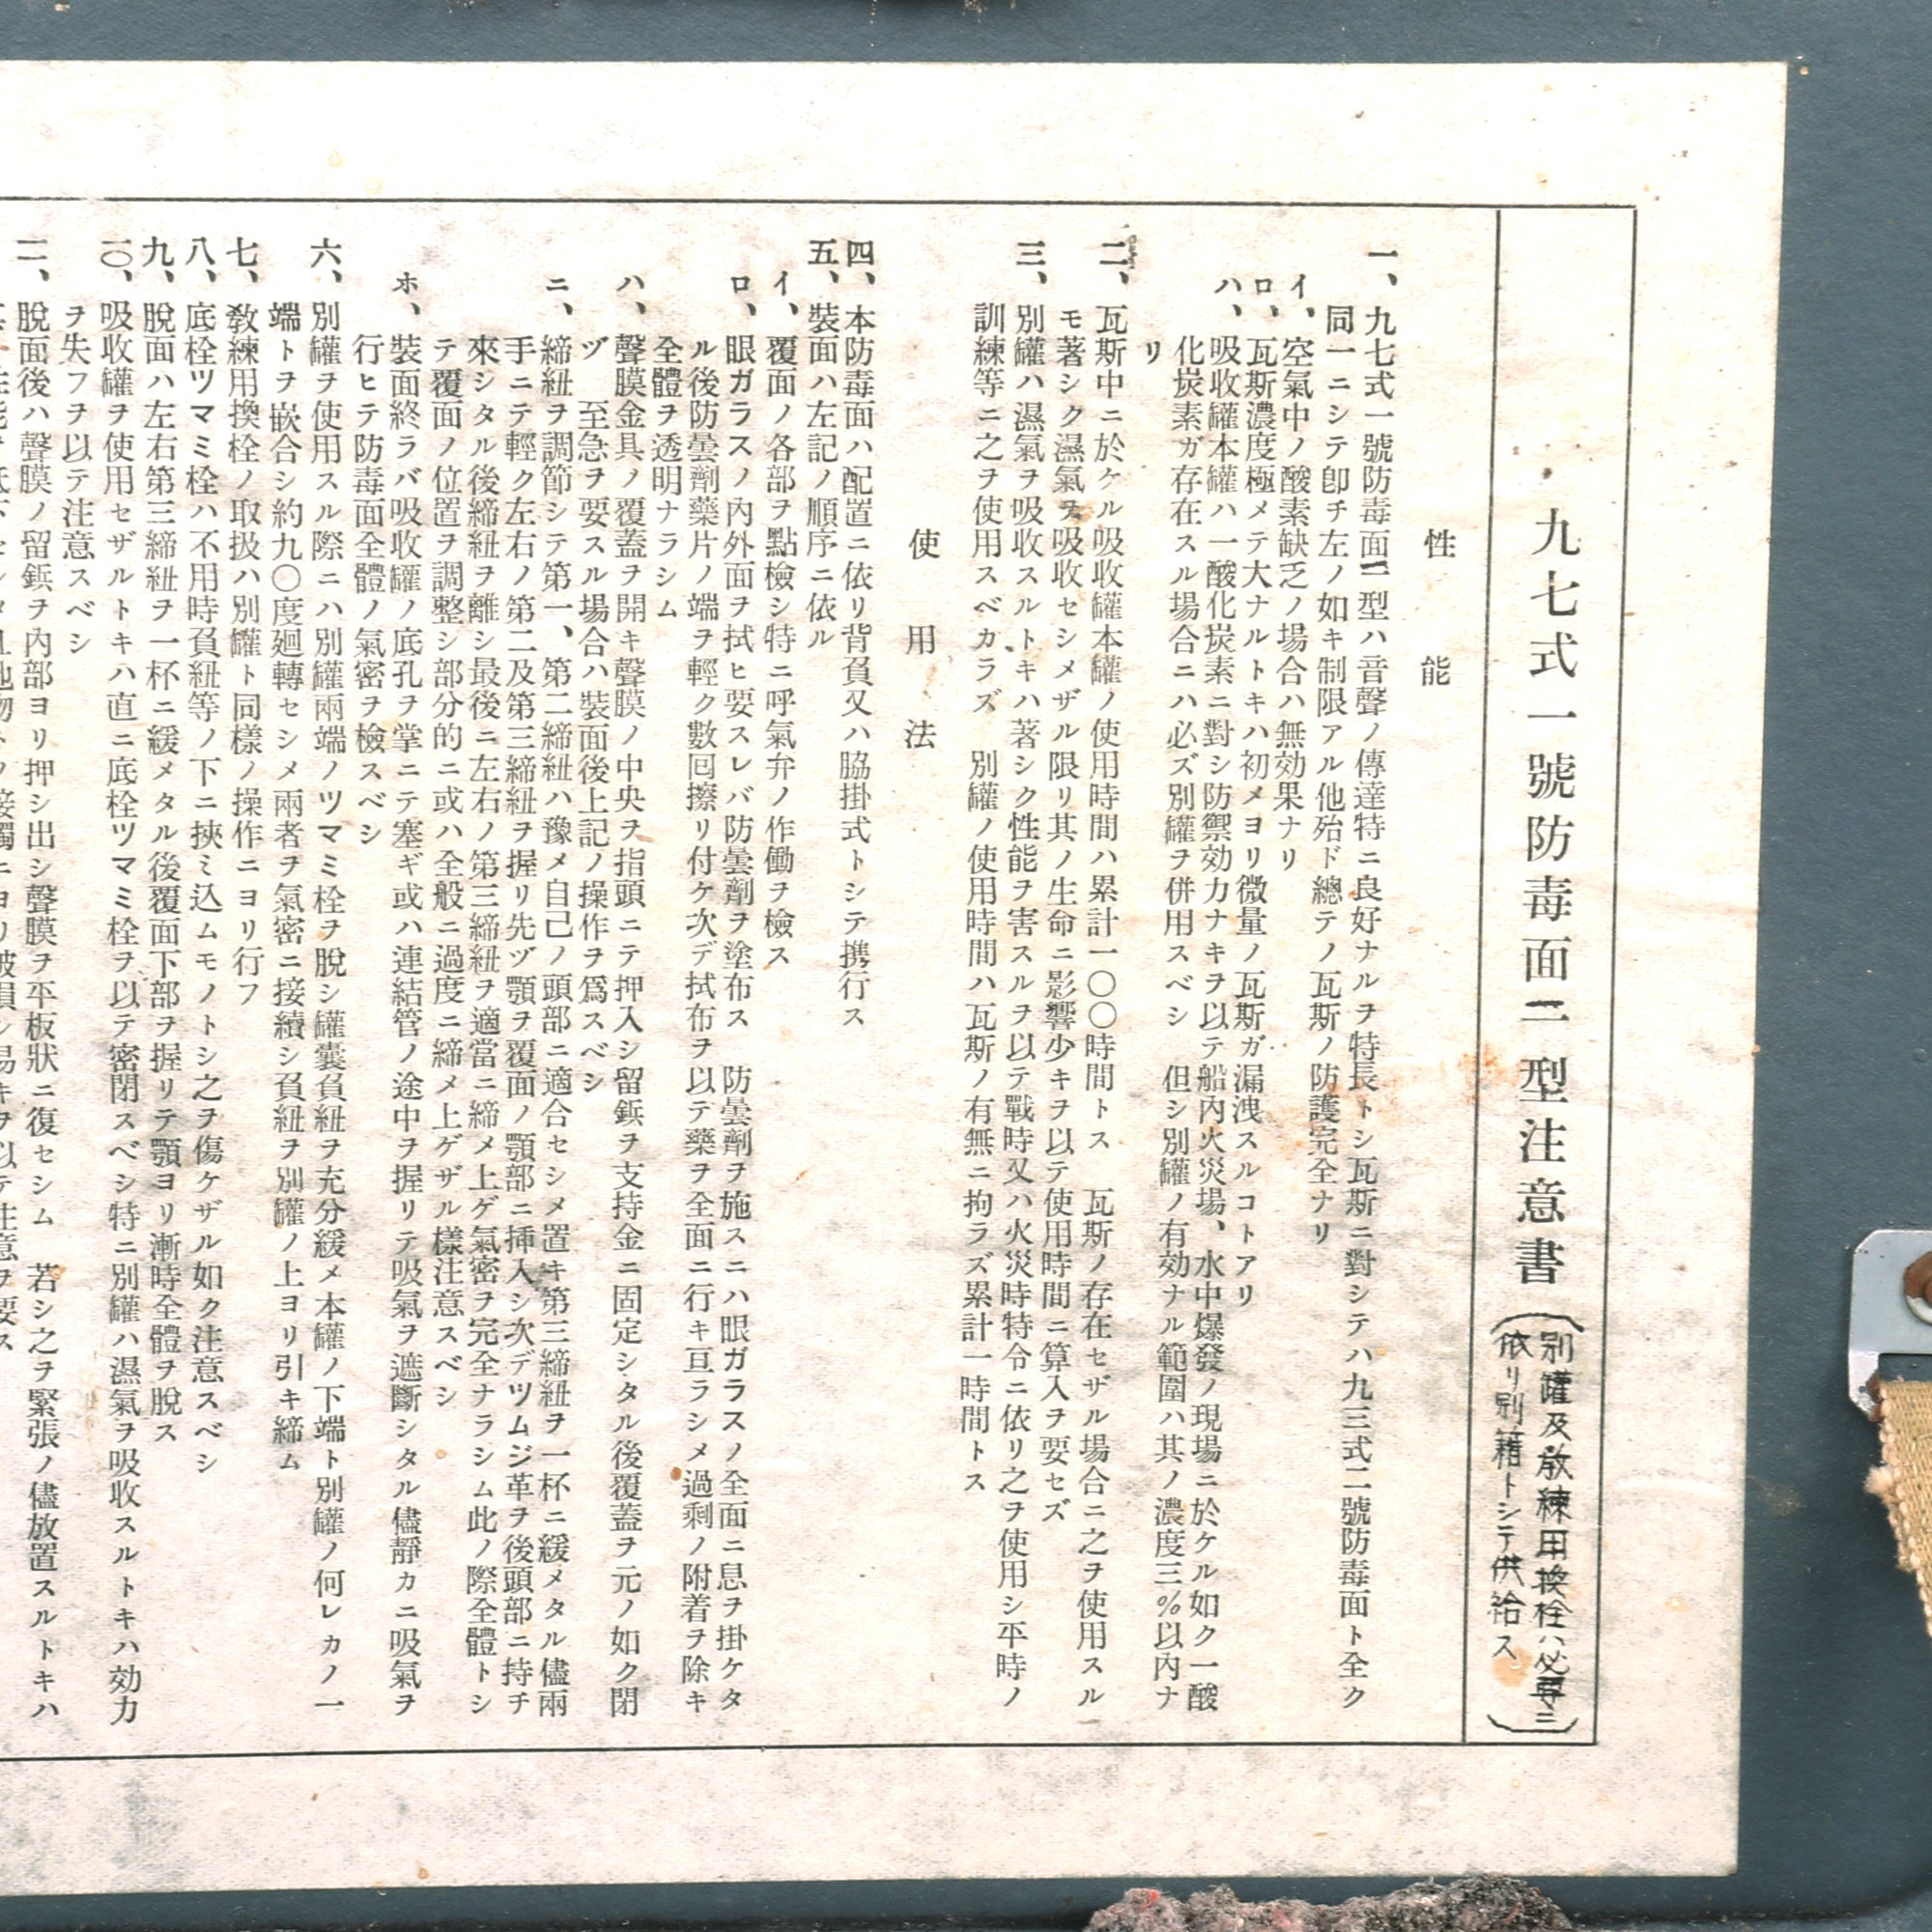 九七式一號防毒面二型注意書
（別罐及敎練用換栓ハ必要ニ
依リ別箱トシテ供給ス）
性能
一、九七式一號防毒面二型ハ音聲ノ傳達特ニ良好ナルヲ特長トシ瓦斯ニ對シテハ九三式二號防毒面ト全ク
同一ニシテ卽チ左ノ如キ制限アル他殆ド總テノ瓦斯ノ防護完全ナリ
イ、空氣中ノ酸素缺乏ノ場合ハ無効果ナリ
ロ、瓦斯濃度極メテ大ナルトキハ初メヨリ微量ノ瓦斯ガ漏洩スルコトアリ
ハ、吸收罐本罐ハ一酸化炭素ニ對シ防禦効力ナキヲ以テ船內火災場、水中爆發ノ現場ニ於ケル如ク一酸
化炭素ガ存在スル場合ニハ必ズ別罐ヲ併用スベシ 但シ別罐ノ有効ナル範圍ハ其ノ濃度三％以內ナ
リ
二、瓦斯中ニ於ケル吸收罐本罐ノ使用時間ハ累計一〇〇時間トス 瓦斯ノ存在セザル場合ニ之ヲ使用スル
モ著シク濕氣ヲ吸收セシメザル限リ其ノ生命ニ影響少キヲ以テ使用時間ニ算入ヲ要セズ
三、別罐ハ濕氣ヲ吸收スルトキハ著シク性能ヲ害スルヲ以テ戰時又ハ火災時特令ニ依リ之ヲ使用シ平時ノ
訓練等ニ之ヲ使用スベカラズ 別罐ノ使用時間ハ瓦斯ノ有無ニ拘ラズ累計一時間トス
使用法
四、本防毒面ハ配置ニ依リ背負又ハ脇掛式トシテ携行ス
五、裝面ハ左記ノ順序ニ依ル
イ、覆面ノ各部ヲ點檢シ特ニ呼氣弁ノ作働ヲ檢ス
ロ、眼ガラスノ內外面ヲ拭ヒ要スレバ防曇劑ヲ塗布ス 防曇劑ヲ施スニハ眼ガラスノ全面ニ息ヲ掛ケタ
ル後防曇劑藥片ノ端ヲ輕ク數囘擦リ付ケ次デ拭布ヲ以テ藥ヲ全面ニ行キ亘ラシメ過剩ノ附着ヲ除キ
全體ヲ透明ナラシム
ハ、聲膜金具ノ覆蓋ヲ開キ聲膜ノ中央ヲ指頭ニテ押入シ留鋲ヲ支持金ニ固定シタル後覆蓋ヲ元ノ如ク閉
ヅ 至急ヲ要スル場合ハ裝面後上記ノ操作ヲ爲スベシ
ニ、締紐ヲ調節シテ第一、第二締紐ハ豫メ自己ノ頭部ニ適合セシメ置キ第三締紐ヲ一杯ニ緩メタル儘兩
手ニテ輕ク左右ノ第二及第三締紐ヲ握リ先ヅ顎ヲ覆面ノ顎部ニ揷入シ次デツムジ革ヲ後頭部ニ持チ
來シタル後締紐ヲ離シ最後ニ左右ノ第三締紐ヲ適當ニ締メ上ゲ氣密ヲ完全ナラシム此ノ際全體トシ
テ覆面ノ位置ヲ調整シ部分的ニ或ハ全般ニ過度ニ締メ上ゲザル樣注意スベシ
ホ、裝面終ラバ吸收罐ノ底孔ヲ掌ニテ塞ギ或ハ連結管ノ途中ヲ握リテ吸氣ヲ遮斷シタル儘靜カニ吸氣ヲ
行ヒテ防毒面全體ノ氣密ヲ檢スベシ
六、別罐ヲ使用スル際ニハ別罐兩端ノツマミ栓ヲ脫シ罐囊負紐ヲ充分緩メ本罐ノ下端ト別罐ノ何レカノ一
端トヲ嵌合シ約九〇度廻轉セシメ兩者ヲ氣密ニ接續シ負紐ヲ別罐ノ上ヨリ引キ締ム
七、敎練用換栓ノ取扱ハ別罐ト同樣ノ操作ニヨリ行フ
八、底栓ツマミ栓ハ不用時負紐等ノ下ニ挾ミ込ムモノトシ之ヲ傷ケザル如ク注意スベシ
九、脫面ハ左右第三締紐ヲ一杯ニ緩メタル後覆面下部ヲ握リテ顎ヨリ漸時全體ヲ脫ス
一〇、吸收罐ヲ使用セザルトキハ直ニ底栓ツマミ栓ヲ以テ密閉スベシ特ニ別罐ハ濕氣ヲ吸收スルトキハ効力
ヲ失フヲ以テ注意スベシ
二、脫面後ハ聲膜ノ留鋲ヲ內部ヨリ押シ出シ聲膜ヲ平板狀ニ復セシム 若シ之ヲ緊張ノ儘放置スルトキハ